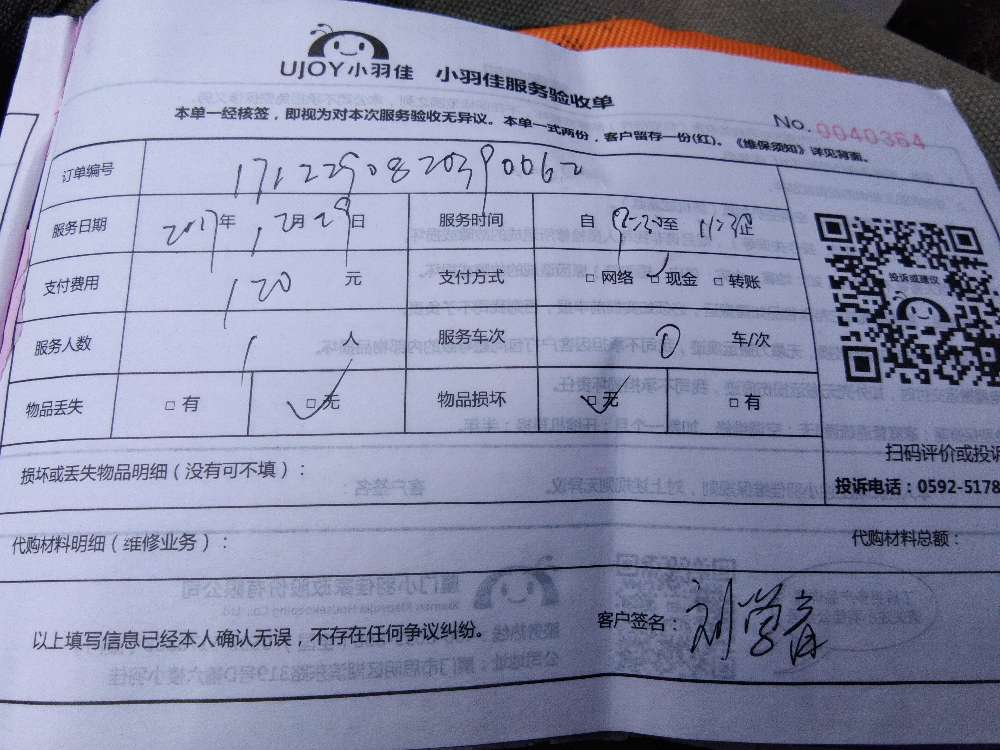 UJOY小羽佳 小羽佳服务验收单
No.0040364
本单一经核签，即视为对本次服务验收无异议。本单一式两份，客户留存一份(红)。《维保须知》详见背面。
订单编号 1712290820390062
服务日期 2017年12月29日 服务时间 自8:30至11:30止
支付费用 120元 支付方式 □网络 □现金 □转账
服务人数 1人 服务车次 0 车/次
物品丢失 □有 □无 物品损坏 □无 □有
投诉或建议
扫码评价或投诉
投诉电话：0592-5178
损坏或丢失物品明细（没有可不填）：
代购材料明细（维修业务）： 代购材料总额：
以上填写信息已经本人确认无误，不存在任何争议纠纷。 客户签名：刘学青